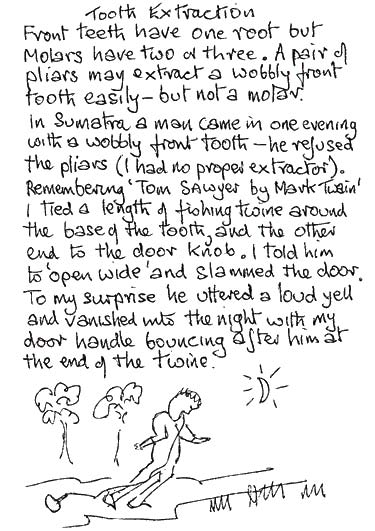 Tooth Extraction
Front teeth have one root but
Molars have two or three. A pair of
pliars may extract a wobbly front
tooth easily - but not a molar.
In Sumatra a man came in one evening
with a wobbly front tooth - he refused
the pliars (I had no proper extractor).
Remembering 'Tom Sawyer by Mark Twain'
I tied a length of fishing twine around
the base of the tooth, and the other
end to the door knob. I told him
to 'open wide' and slammed the door.
To my surprise he uttered a loud yell
and vanished into the night with my
door handle bouncing after him at
the end of the twine.